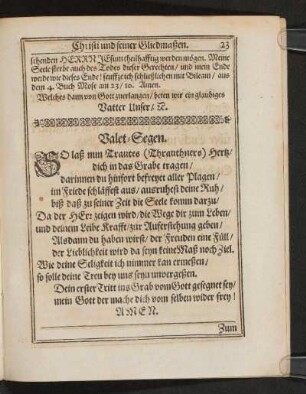 Christi und seiner Gliedmaßen. 23
stehenden HERRN JEsum theilhafftig werden mögen. Meine
Seele sterbe auch des Todes dieser Gerechten / und mein Ende
werde wie dieses Ende! seufftz ich schließlichen mit Bileam / aus
dem 4. Buch Mose am 23 / 10. Amen.
Welches dann von Gott zuerlangen / beten wir ein glaubiges
Vatter Unser / ⁊c.
Valet-Segen.
SO laß nun Trautes (Thranthners) Hertz /
dich in das Grabe tragen /
darinnen du hinfort befreyet aller Plagen /
im Friede schläffest aus / ausruhest deine Ruh /
biß daß zu seiner Zeit die Seele komm darzu /
Da der HErr zeigen wird / die Wege dir zum Leben /
und deinem Leibe Krafft / zur Aufersthung geben /
Alsdann du haben wirst / der Freuden eine Füll /
der Lieblichkeit wird da seyn keine Maß noch Ziel.
Wie deine Seligkeit ich nimmer kan ermeßen /
so solle deine Treu bey uns seyn unvergeßen.
Dein erster Tritt ins Grab vom Gott gesegnet sey /
mein Gott der mache dich vom selben wider frey!
AMEN.
Zum